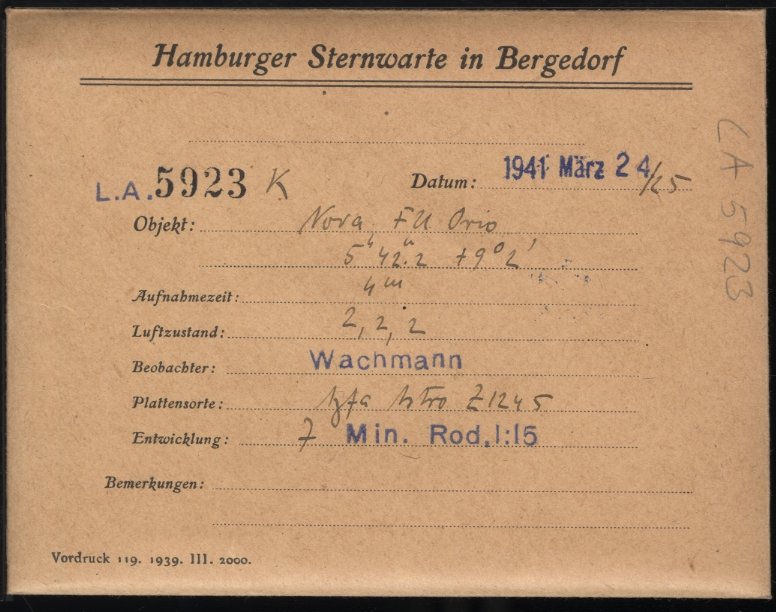 Hamburger Sternwarte in Bergedorf
L.A. 5923 K
Datum: 1941 März 24/25
Objekt: Nova FU Orio
5h 42m.2 +9° 2'
Aufnahmezeit: 4m
Luftzustand: 2, 2, 2
Beobachter: Wachmann
Plattensorte: Agfa Astro Z1245
Entwicklung: 7 Min. Rod. 1:15
Bemerkungen:
Vordruck 119. 1939. III. 2000.
LA 5923